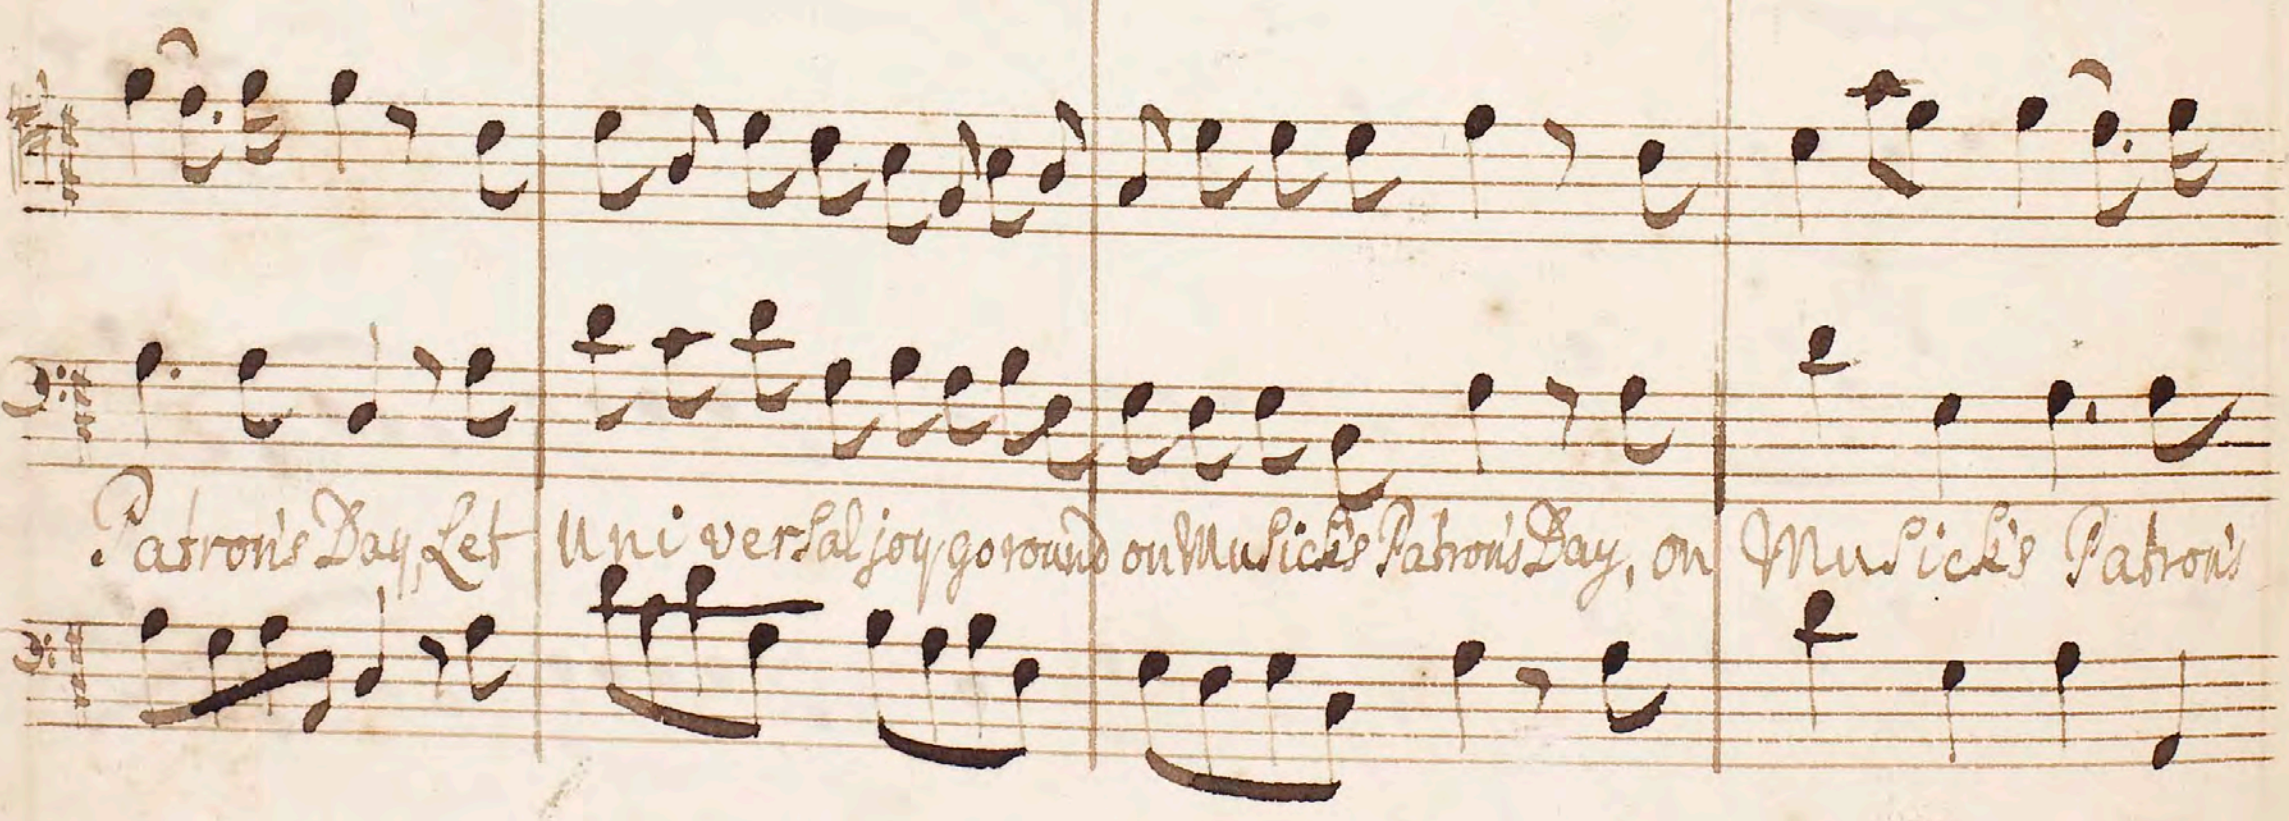 Patron's Day, Let Universal joy go round on Musick's Patron's Day, on Musick's Patron's